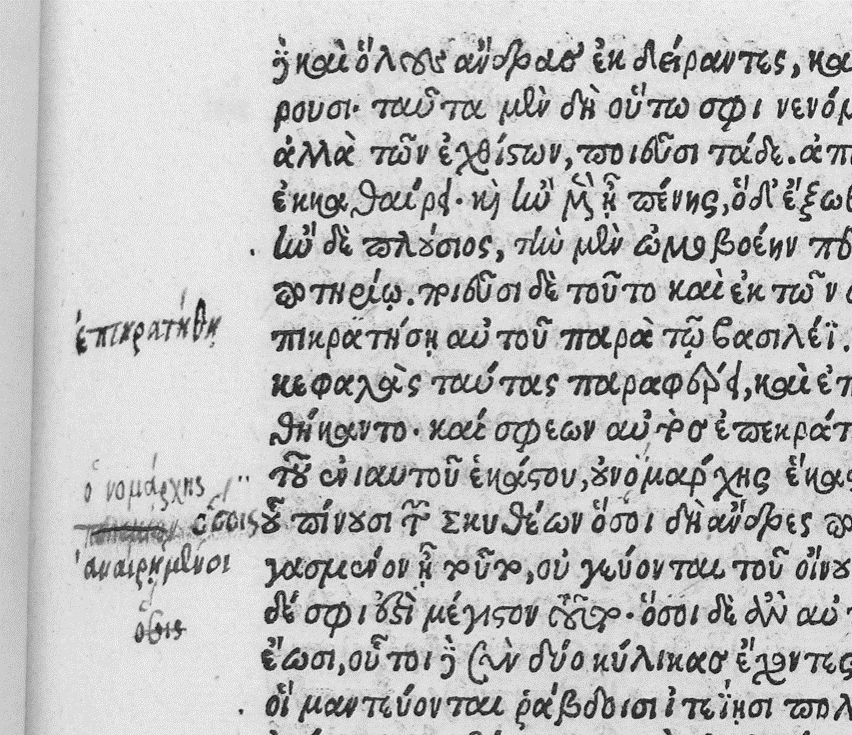 καὶ ὅλους ἄνδρας ἐκδείραντες, κα
ρουσι· ταῦτα μὲν δὴ οὕτω σφι νενόμ
ἀλλὰ τῶν ἐχθίστων, ποιεῦσι τάδε. ἀπ
ἐκκαθαίρει· καὶ ἢν μὲν ᾖ πένης, ὁ δ' ἔξωθ
ἢν δὲ πλούσιος, τὴν μὲν ὠμοβοέην π
ποτηρίῳ. ποιεῦσι δὲ τοῦτο καὶ ἐκ τῶν ο
ἐπικρατήθη
πικρατήσῃ αὐτοῦ παρὰ τῷ βασιλέϊ.
κεφαλὰς ταύτας παραφέρει, καὶ ἐπ
θήκαντο· καί σφεων αὐτὸς ἐπεκράτ
τοῦ ἐνιαυτοῦ ἑκάστου, ὁ νομάρχης ἕκασ
ὁ νομάρχης
οὗ πίνουσι τῶν Σκυθέων ὅσοι δὴ ἄνδρες
ὅσοις
γασμένον ᾖ τοῦτο, οὐ γεύονται τοῦ οἴνου
ἀναιρημένοι
δέ σφι ἐστὶ μέγιστον τοῦτο· ὅσοι δὲ ἂν αὐ
ἔωσι, οὗτοι σὺν δύο κύλικας ἔχοντες
οἳ μαντεύονται ῥάβδοισι ἰτεΐῃσι πολ